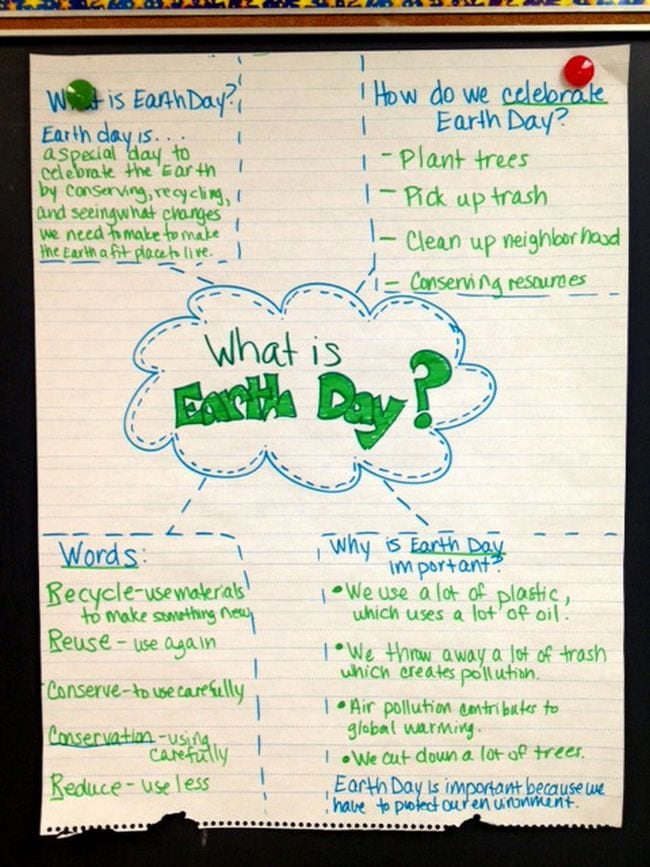 What is Earth Day?
Earth day is...
a special day to
celebrate the Earth
by conserving, recycling,
and seeing what changes
we need to make to make
the Earth a fit place to live.
How do we celebrate
Earth Day?
- Plant trees
- Pick up trash
- Clean up neighborhood
- Conserving resources
What is
Earth Day?
Words:
Recycle - use materials
to make something new
Reuse - use again
Conserve - to use carefully
Conservation - using
carefully
Reduce - use less
Why is Earth Day
important?
• We use a lot of plastic,
which uses a lot of oil.
• We throw away a lot of trash
which creates pollution.
• Air pollution contributes to
global warming.
• We cut down a lot of trees.
Earth Day is important because we
have to protect our environment.